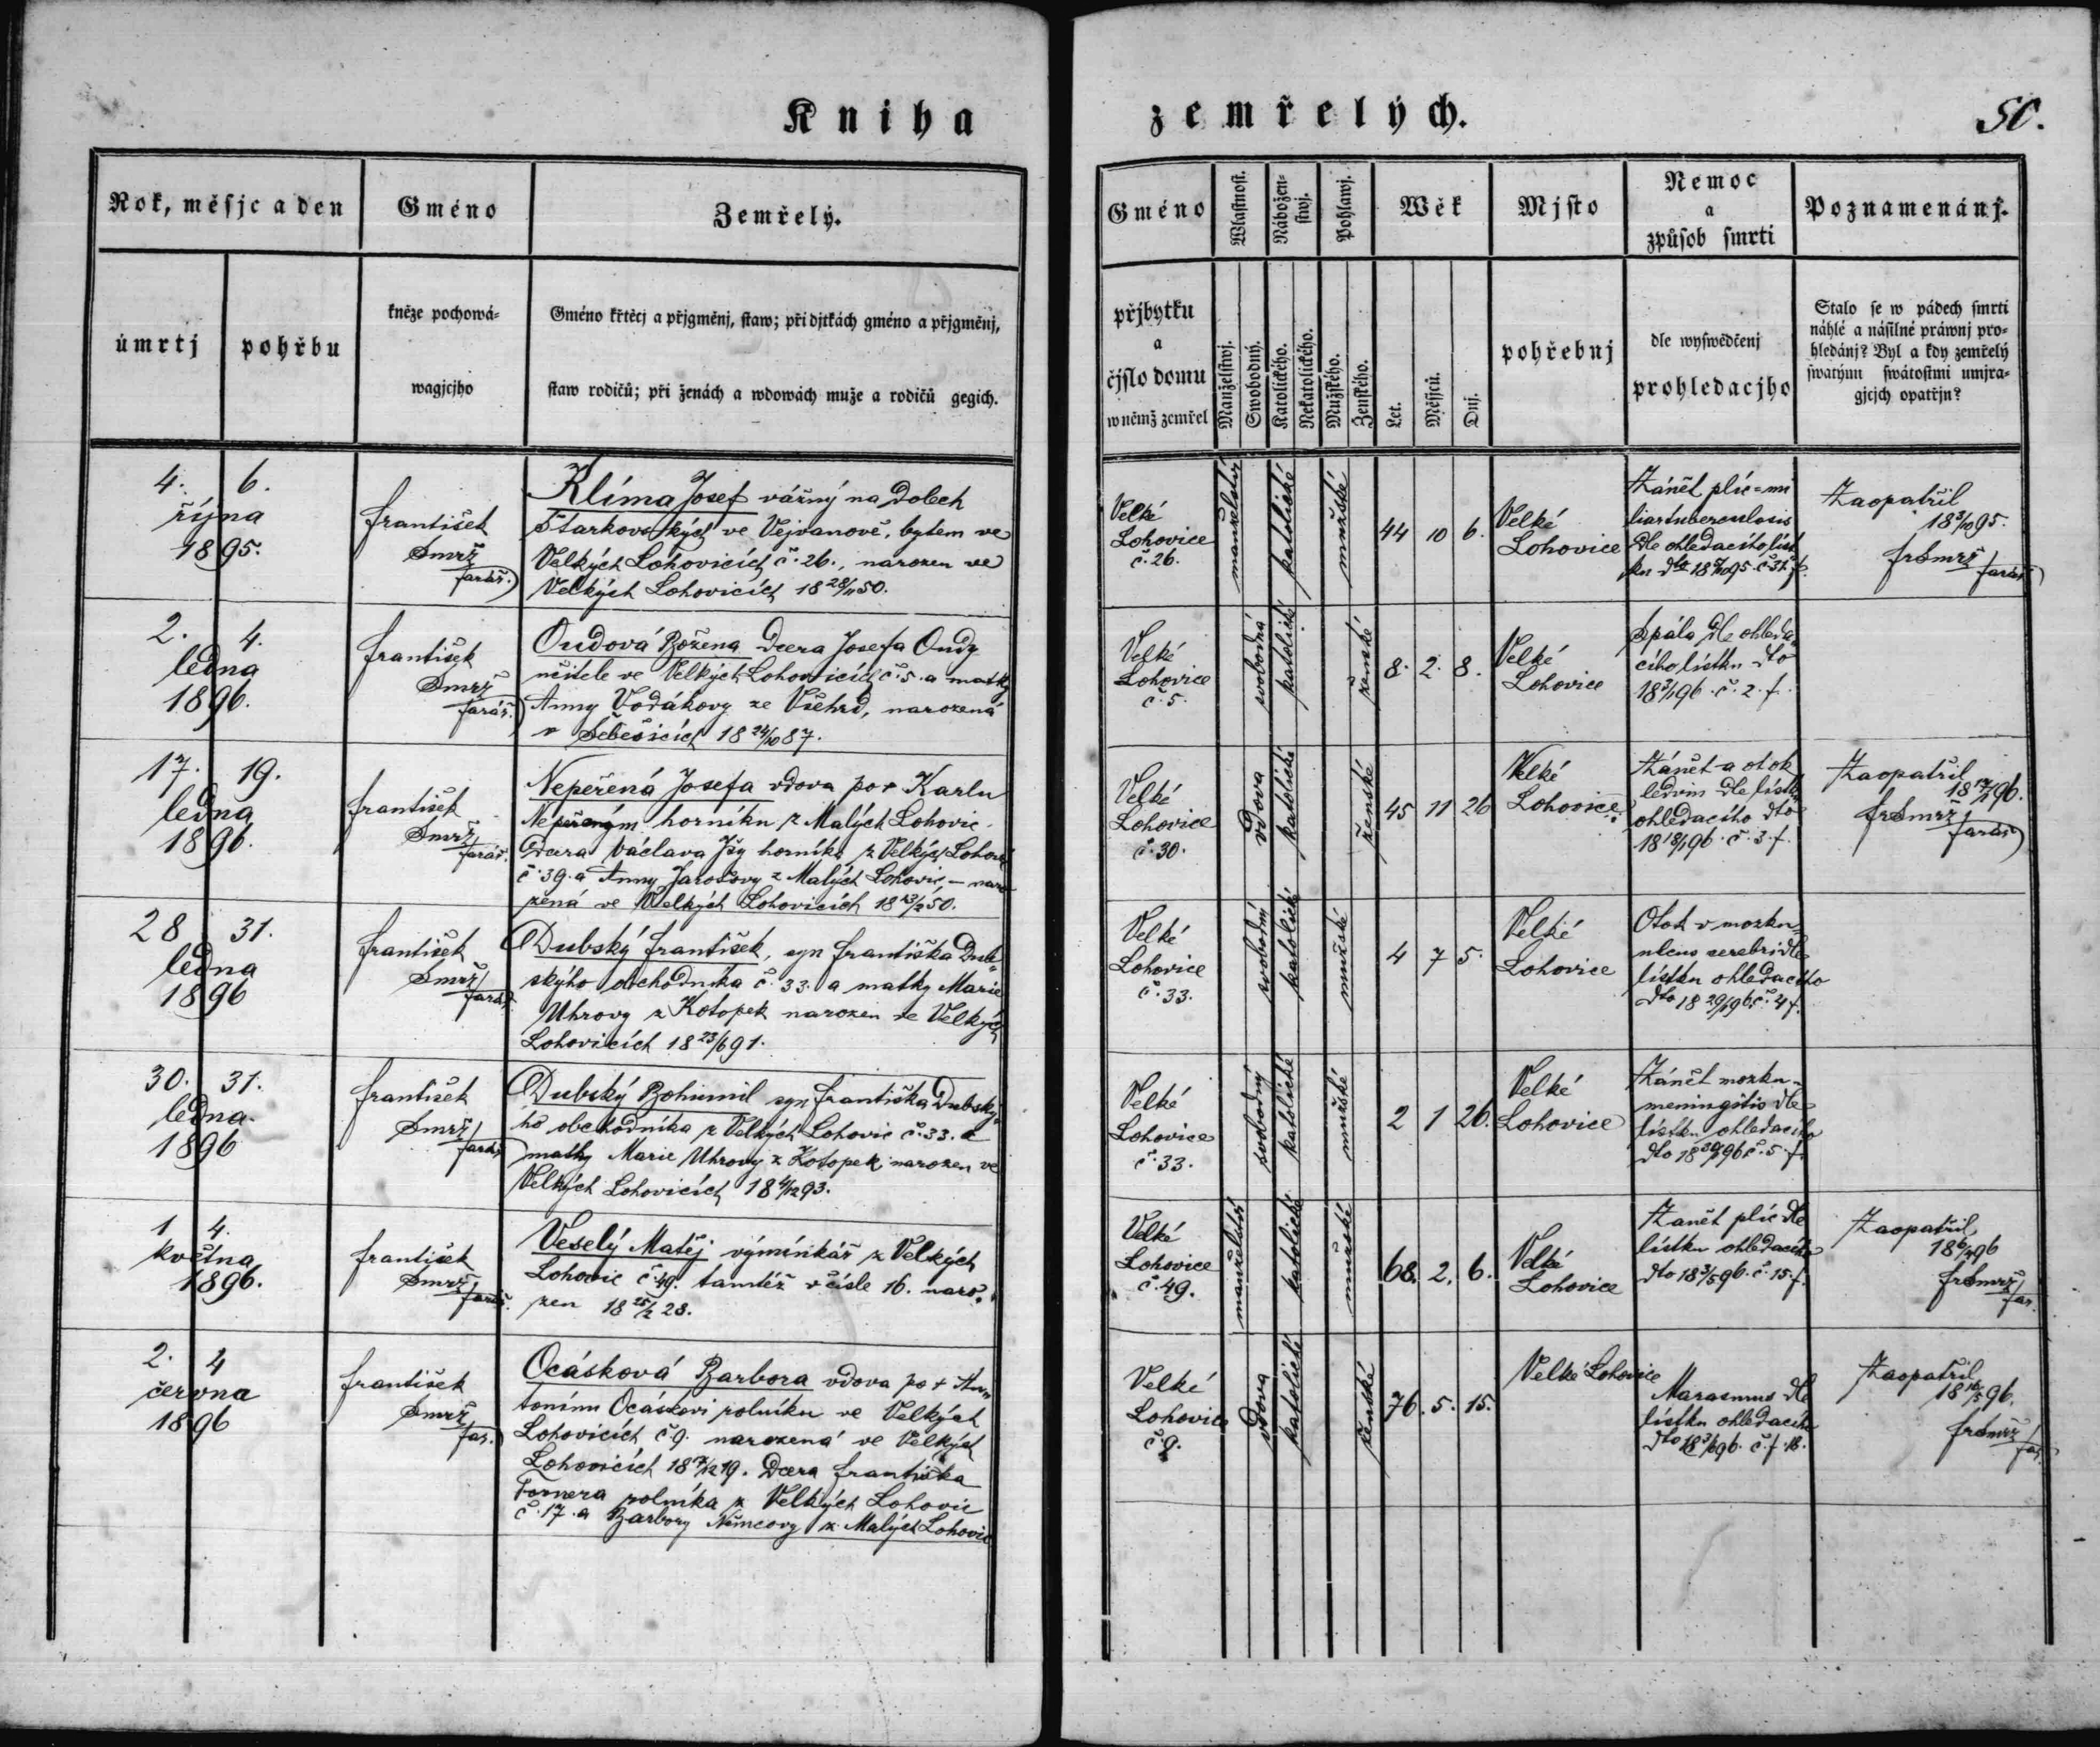 Kniha
zemřelých.
50.
Rok, měsjc a den
Gméno
Zemřelý.
úmrtj
pohřbu
kněze pochowá-
wagjcjho
Gméno křtěcj a přjgměnj, staw; při djtkách gméno a přjgměnj,
staw rodičů; při ženách a wdowách muže a rodičů gegich.
Gméno
Wlastnost.
Nábožen-
stwj.
Pohlawj.
Wěk
Mjsto
Nemoc
a
způsob smrti
Poznamenánj.
přjbytku
a
čjslo domu
w němž zemřel
Manželstwj.
Swobodný.
Katolického.
Nekatolického.
Mužského.
Ženského.
Let.
Měsjců.
Dnj.
pohřebnj
dle wyswědčenj
prohledacjho
Stalo se w pádech smrti
náhlé a násilné práwnj pro-
hledánj? Byl a kdy zemřelý
swatými swátostmi umjra-
gjcjch opatřjn?
4. 6.
října
1895.
František
Smrž
farář.
Klíma Josef vážný na dolech
Starkovských ve Vejvanově, bytem ve
Velkých Lohovicích č. 26., narozen ve
Velkých Lohovicích 18 28/11 50.
Velké
Lohovice
č. 26.
manželství
katolické
mužské
44 10 6.
Velké
Lohovice
Zánět plic = mi
liartuberculosis
dle ohledacího líst
ku dto
Zaopatřil
18 3/10 95.
fr Smrž
farář
2. 4.
ledna
1896.
František
Smrž
farář.
Oudová Božena dcera Josefa Oudy
učitele ve Velkých Lohovicích č. 5. a matky
Anny Vodákovy ze Všehrd, narozená
v Šebešicích 18 24/10 87.
Velké
Lohovice
č. 5.
svobodná
katolické
ženské
8. 2. 8.
Velké
Lohovice
Spála dle ohleda
cího lístku dto
18 3/1 96. č. 2. f.
17. 19.
ledna
1896.
František
Smrž
farář.
Nepeřená Josefa vdova po + Karlu
Nepeřeným horníku z Malých Lohovic.
Dcera Václava horníka z Velkých Lohovic
č. 39. a Anny Jarošovy z Malých Lohovic – naro
zená ve Velkých Lohovicích
Velké
Lohovice
č. 30.
vdova
katolické
ženské
45 11 26
Velké
Lohovice
Zánět a otok
ledvin dle lístku
ohledacího dto
18 18/1 96. č. 3. f.
Zaopatřil
18 17/1 96.
fr Smrž
farář
28 31.
ledna
1896
František
Smrž
farář.
Dubský František, syn Františka Dub
ského obchodníka č. 33. a matky Marie
Uhrovy z Kotopek narozen ve Velkých
Lohovicích 18 23/6 91.
Velké
Lohovice
č. 33.
svobodný
katolické
mužské
4 7 5.
Velké
Lohovice
Otok v mozku,
ulcus cerebri dle
lístku ohledacího
dto 18 29/1 96. č. 4 f.
30. 31.
ledna.
1896
František
Smrž
farář
Dubský Bohumil syn Františka Dubské
ho obchodníka z Velkých Lohovic č. 33. a
matky Marie Uhrovy z Kotopek, narozen ve
Velkých Lohovicích 18 4/12 93.
Velké
Lohovice
č. 33.
svobodný
katolické
mužské
2 1 26.
Velké
Lohovice
Zánět mozku –
meningitis dle
lístku ohledacího
dto 18 30/1 96 č. 5. f.
1 4.
května
1896.
František
Smrž
farář.
Veselý Matěj výminkář z Velkých
Lohovic č. 49. tamtéž v čísle 16. naro-
zen 18 25/2 28.
Velké
Lohovice
č. 49.
manželství
katolické
mužské
68. 2. 6.
Velké
Lohovice
Zanět plic dle
lístku ohledacího
dto 18 3/5 96. č. 15. f.
Zaopatřil
fr Smrž
far.
2. 4
června
1896
František
Smrž
far.
Ocásková Barbora vdova po + An-
tonínu Ocáskovi rolníku ve Velkých
Lohovicích č. 9. narozená ve Velkých
Lohovicích 18 7/12 19. Dcera Františka
Fornera rolníka z Velkých Lohovic
č. 17. a Barbory Němcovy z Malých Lohovic
Velké
Lohovice
č. 9.
vdova
katolické
ženské
76. 5. 15.
Velké Lohovice
Marasmus dle
lístku ohledacího
dto 18 3/6 96. č. f. 18.
Zaopatřil
fr Smrž
far.